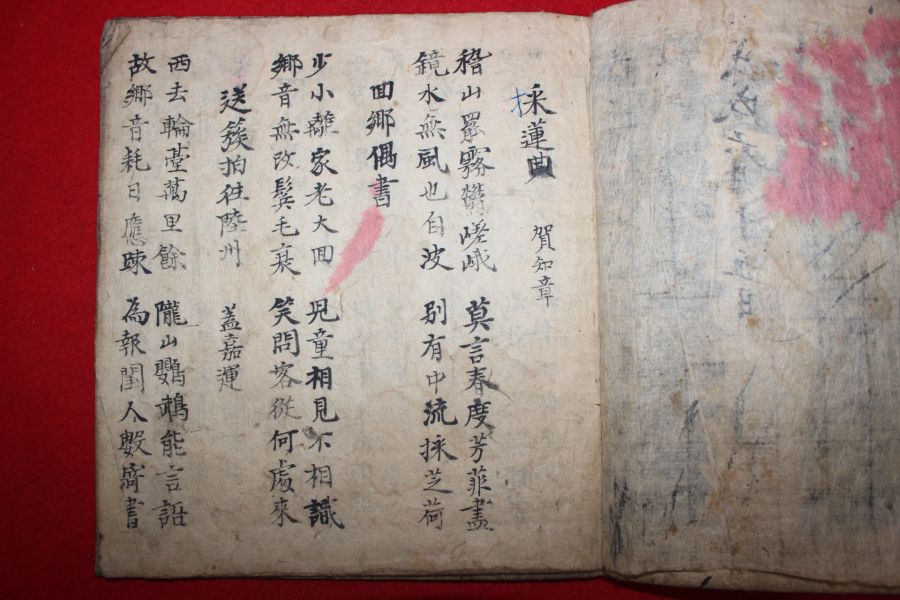 採蓮曲 賀知章
稽山罷霧鬱嵯峨 莫言春度芳菲盡
鏡水無風也自波 別有中流採芝荷
回鄉偶書
少小離家老大回 児童相見不相識
鄉音無改鬂毛衰 笑問客從何處來
送簇拍徃陸州 盖嘉運
西去輪臺萬里餘 隴山鸚鵡能言語
故鄉音耗日應踈 為報閨人數寄書